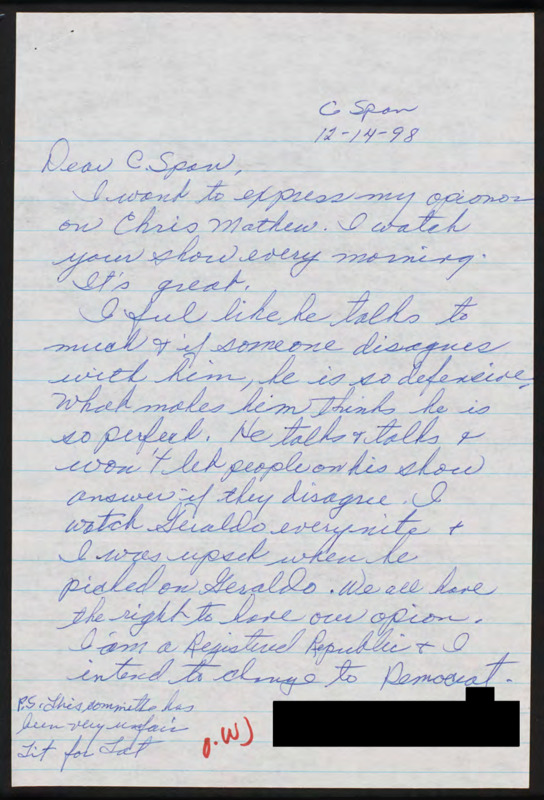 C Span
12-14-98
Dear C. Span,
I want to express my opionor
on Chris Mathew. I watch
your show every morning.
It's great.
I ful like he talks to
much & if someone disagues
with him, he is so defensive.
What makes him thinks he is
so perfect. He talks & talks &
won't let people on his show
answer if they disagree. I
watch Geraldo everynite &
I was upset when he
picked on Geraldo. We all have
the right to have our opion.
I am a Registered Republic & I
intend to change to Democrat.
P.S. This committe has
been very unfair
Tit for Tat